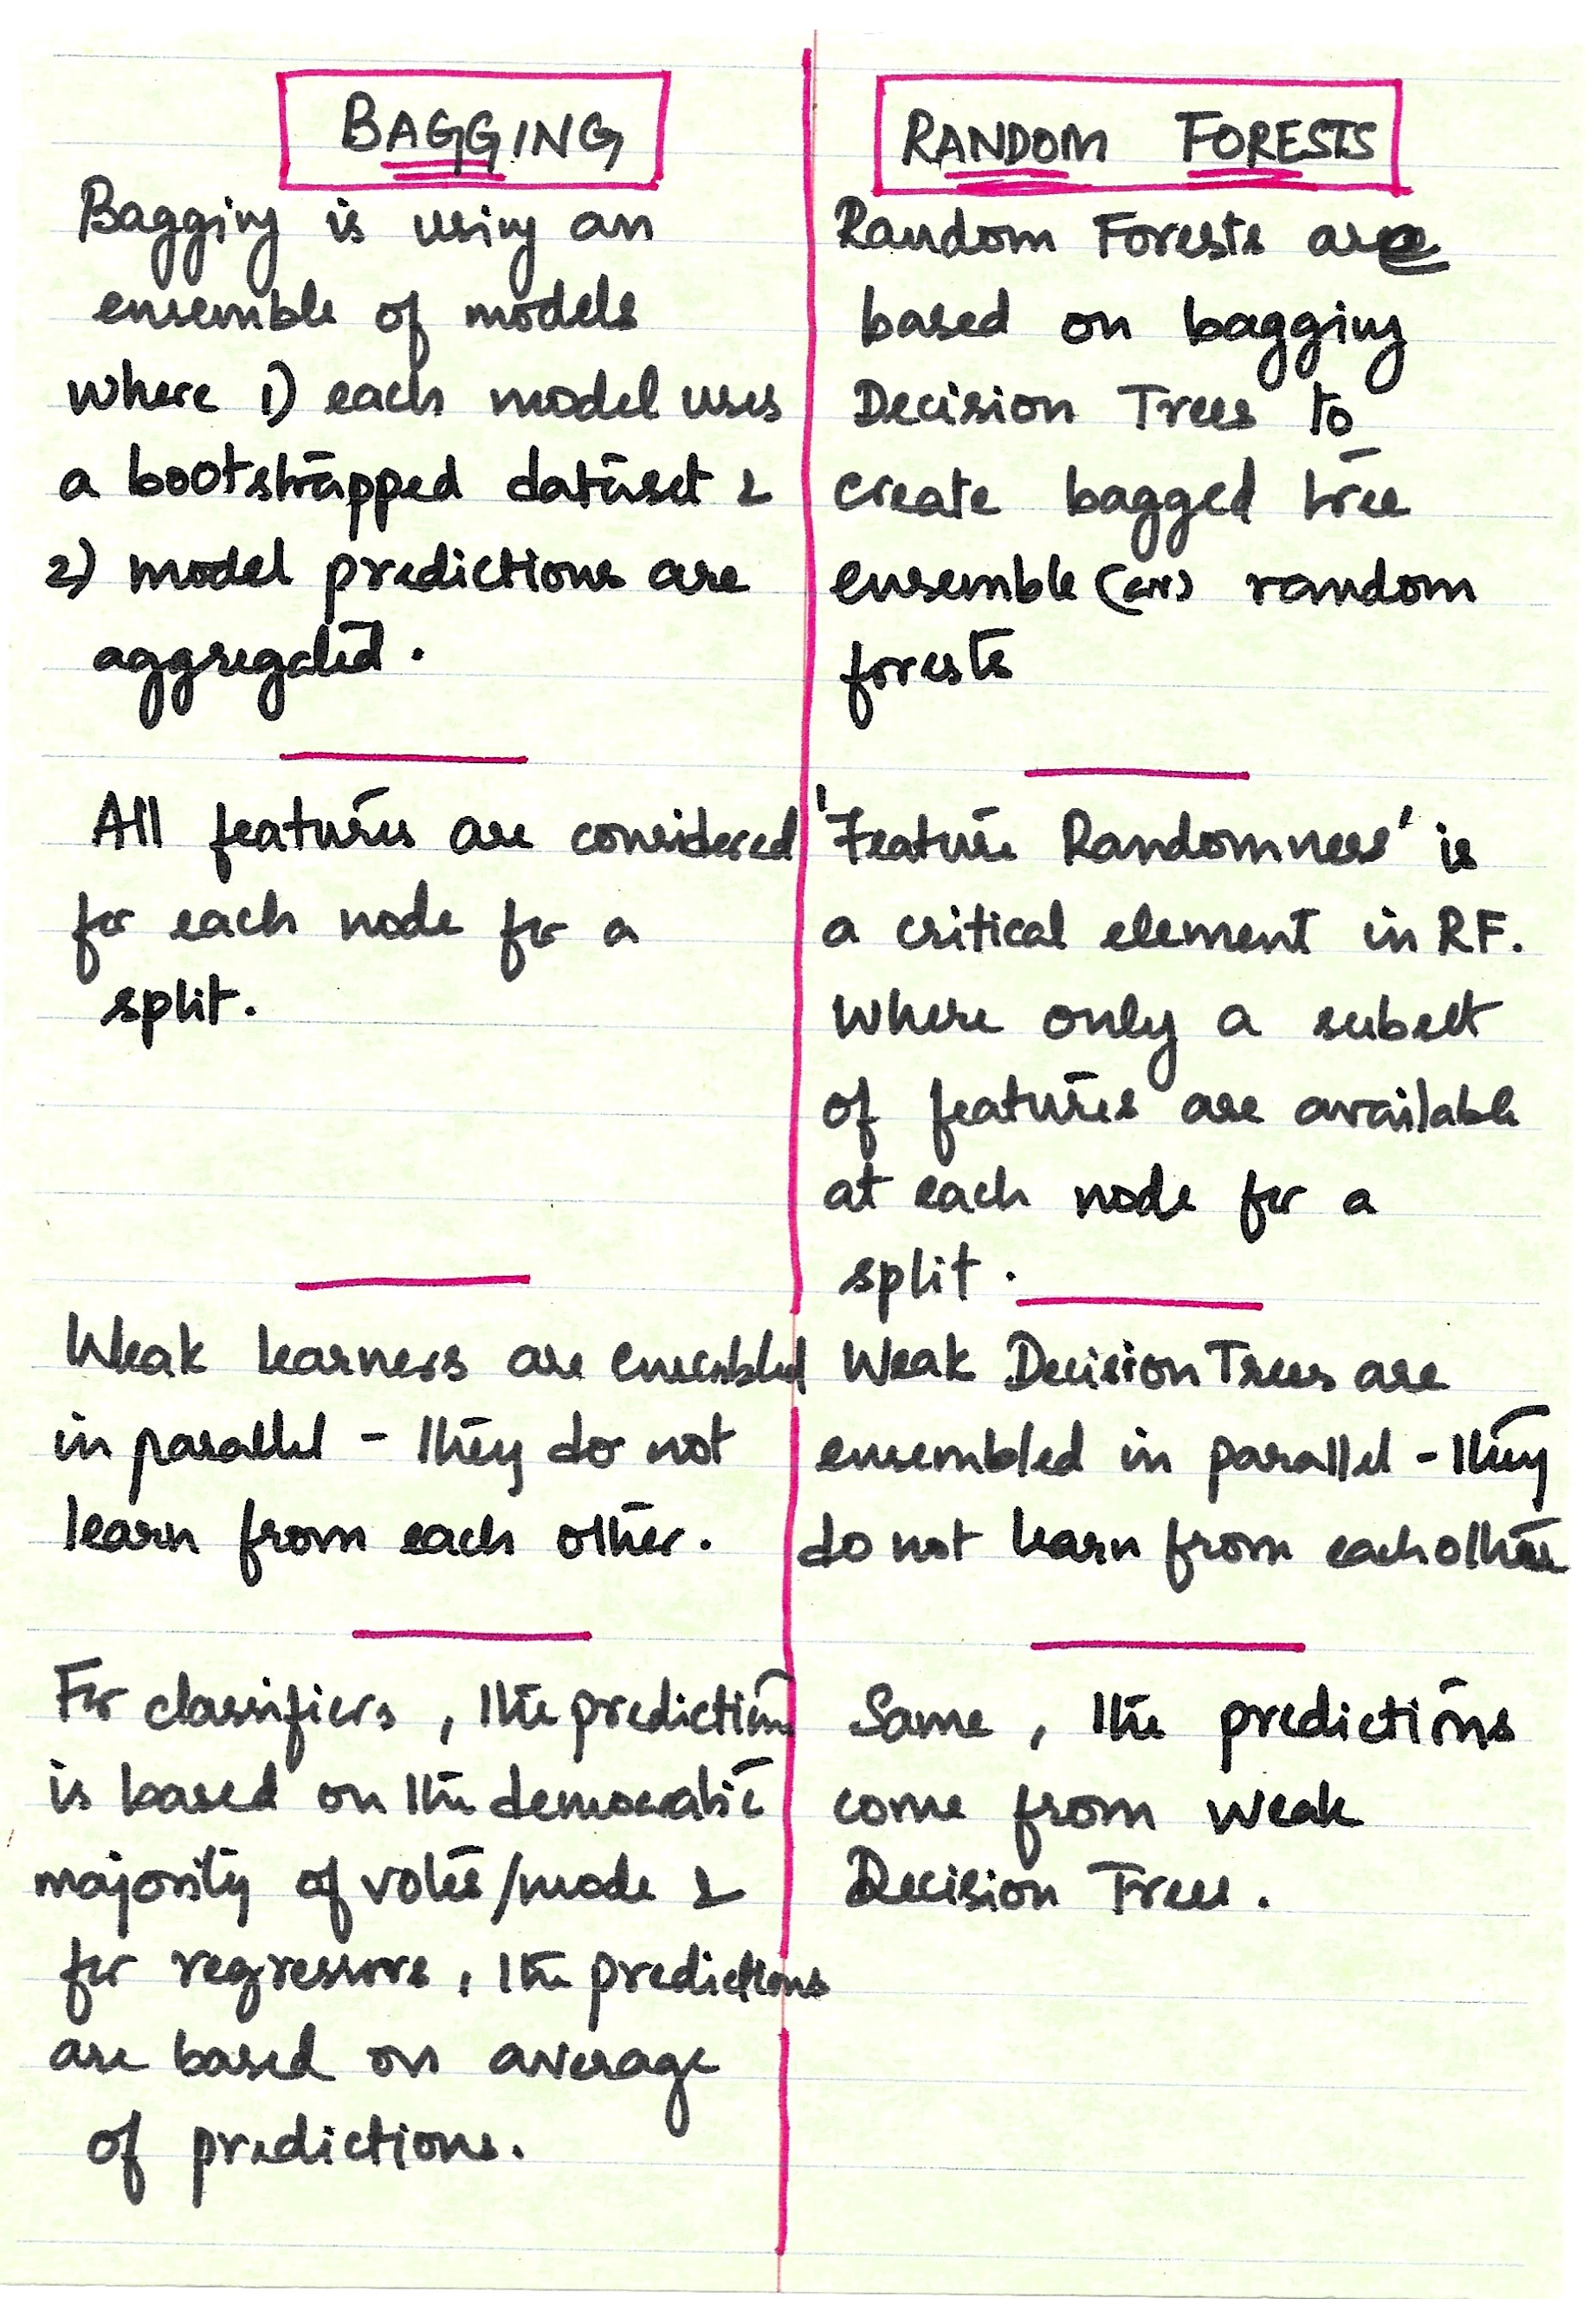 BAGGING
Bagging is using an
ensemble of models
where 1) each model uses
a bootstrapped dataset &
2) model predictions are
aggregated.
All features are considered
for each node for a
split.
Weak learners are ensembled
in parallel - they do not
learn from each other.
For classifiers, the prediction
is based on the democratic
majority of votes/mode &
for regressors, the predictions
are based on average
of predictions.
RANDOM FORESTS
Random Forests are
based on bagging
Decision Trees to
create bagged tree
ensemble (or) random
forests
'Feature Randomness' is
a critical element in RF.
Where only a subset
of features are available
at each node for a
split.
Weak Decision Trees are
ensembled in parallel - they
do not learn from each other
Same, the predictions
come from weak
Decision Trees.